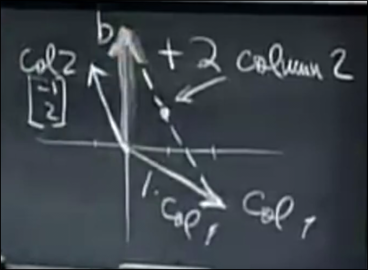 b
+ 2 column 2
col 2
[-1
2]
1. col 1
col 1